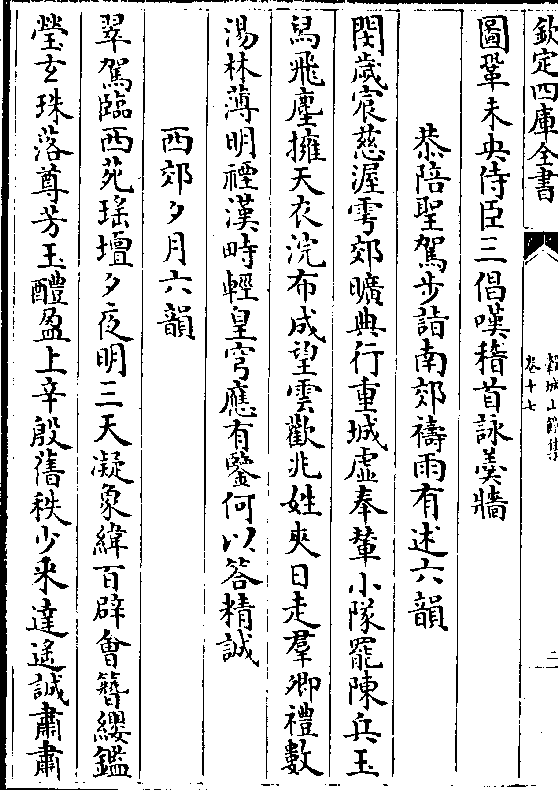 欽定四庫全書
卷十七
二
圖鞏未央侍臣三倡嘆稽首詠羹牆
恭陪聖駕步詣南郊禱雨有述六韻
閔歲宸慈渥雩郊曠典行重城虛奉輦小隊罷陳兵玉
舄飛塵擁天衣浣布成望雲歡兆姓夾日走羣卿禮數
湯林薄明禋漢畤輕皇穹應有鑒何以答精誠
西郊夕月六韻
翠駕臨西苑瑤壇夕夜明三天凝象緯百辟會簪纓鑑
瑩玄珠落尊芳玉醴盈上辛殷舊秩少采達遙誠肅肅